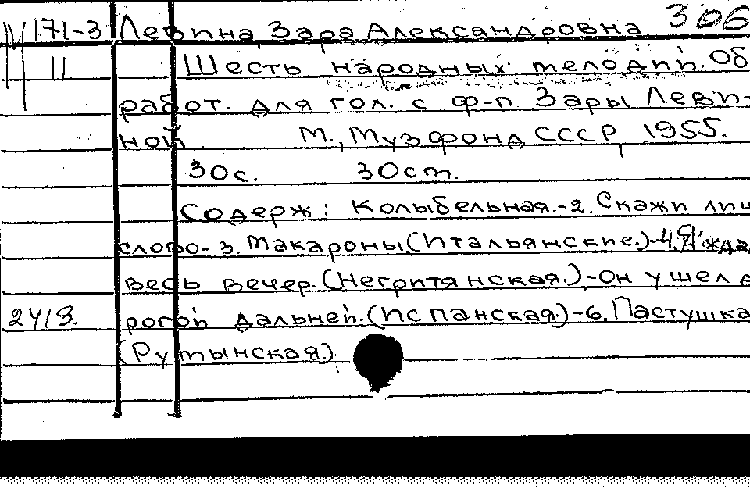 306
М 171-3 Левина, Зара Александровна
II Шесть народных мелодий. Об
работ. для гол. с ф-п. Зары Леви-
ной. М., Музфонд СССР, 1955.
30с. 30ст.
Содерж: Колыбельная.-2. Скажи лиш
слово-3. Макароны.(Итальянские.)-4. Я жда
весь вечер.(Негритянская.)-Он ушел д
2413. рогой дальней.(Испанская.)-6. Пастушка
(Румынская.)